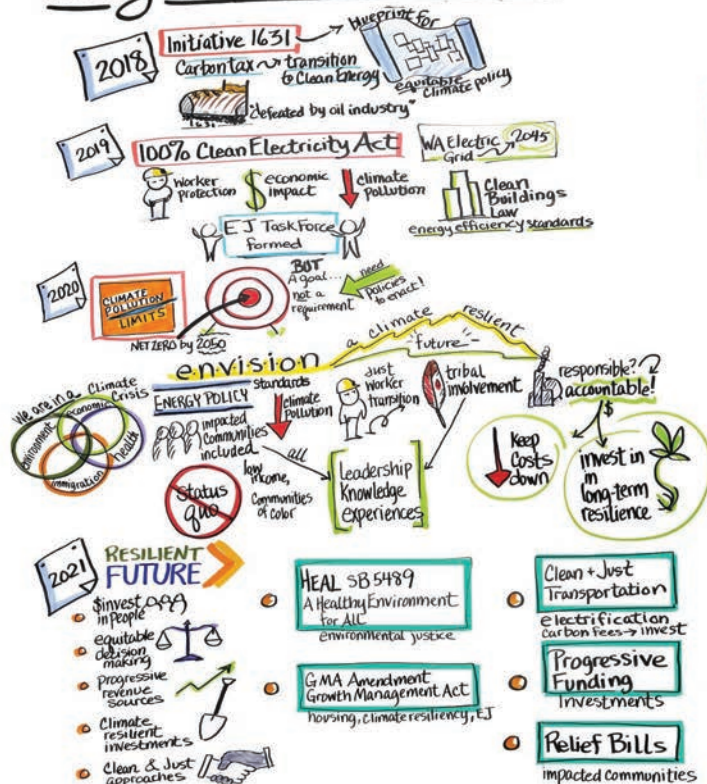 2018
Initiative 1631
Carbon tax
transition
to Clean Energy
blueprint for
equitable
climate policy
1631
"defeated by oil industry"
2019
100% Clean Electricity Act
WA Electric 2045
Grid
Worker
protection
$ economic
impact
climate
pollution
Clean
Buildings
Law
energy efficiency standards
EJ Task Force
formed
2020
CLIMATE
POLLUTION
LIMITS
NET ZERO by 2050
BUT
A goal...
not a
requirement
need
Policies
to enact!
envision
a climate reslient
-future-
We are in a Climate
Crisis
economic
environment
health
immigration
standards
ENERGY POLICY
impacted
communities
included
climate
Pollution
Just
Worker
transition
tribal
involvement
responsible?
accountable!
$
all
low
income,
Communities
of color
Status
quo
Leadership
Knowledge
experiences
Keep
Costs
down
invest in
in
long-term
resilience
2021
RESILIENT
FUTURE
$invest
in People
equitable
decision
making
Progressive
revenue
sources
Climate
resilient
investments
Clean & Just
approaches
HEAL SB 5489
A Healthy Environment
for All
environmental justice
GMA Amendment
Growth Management Act
housing, climate resiliency, EJ
Clean + Just
Transportation
electrification
carbon fees → invest
Progressive
Funding
Investments
Relief Bills
impacted communities